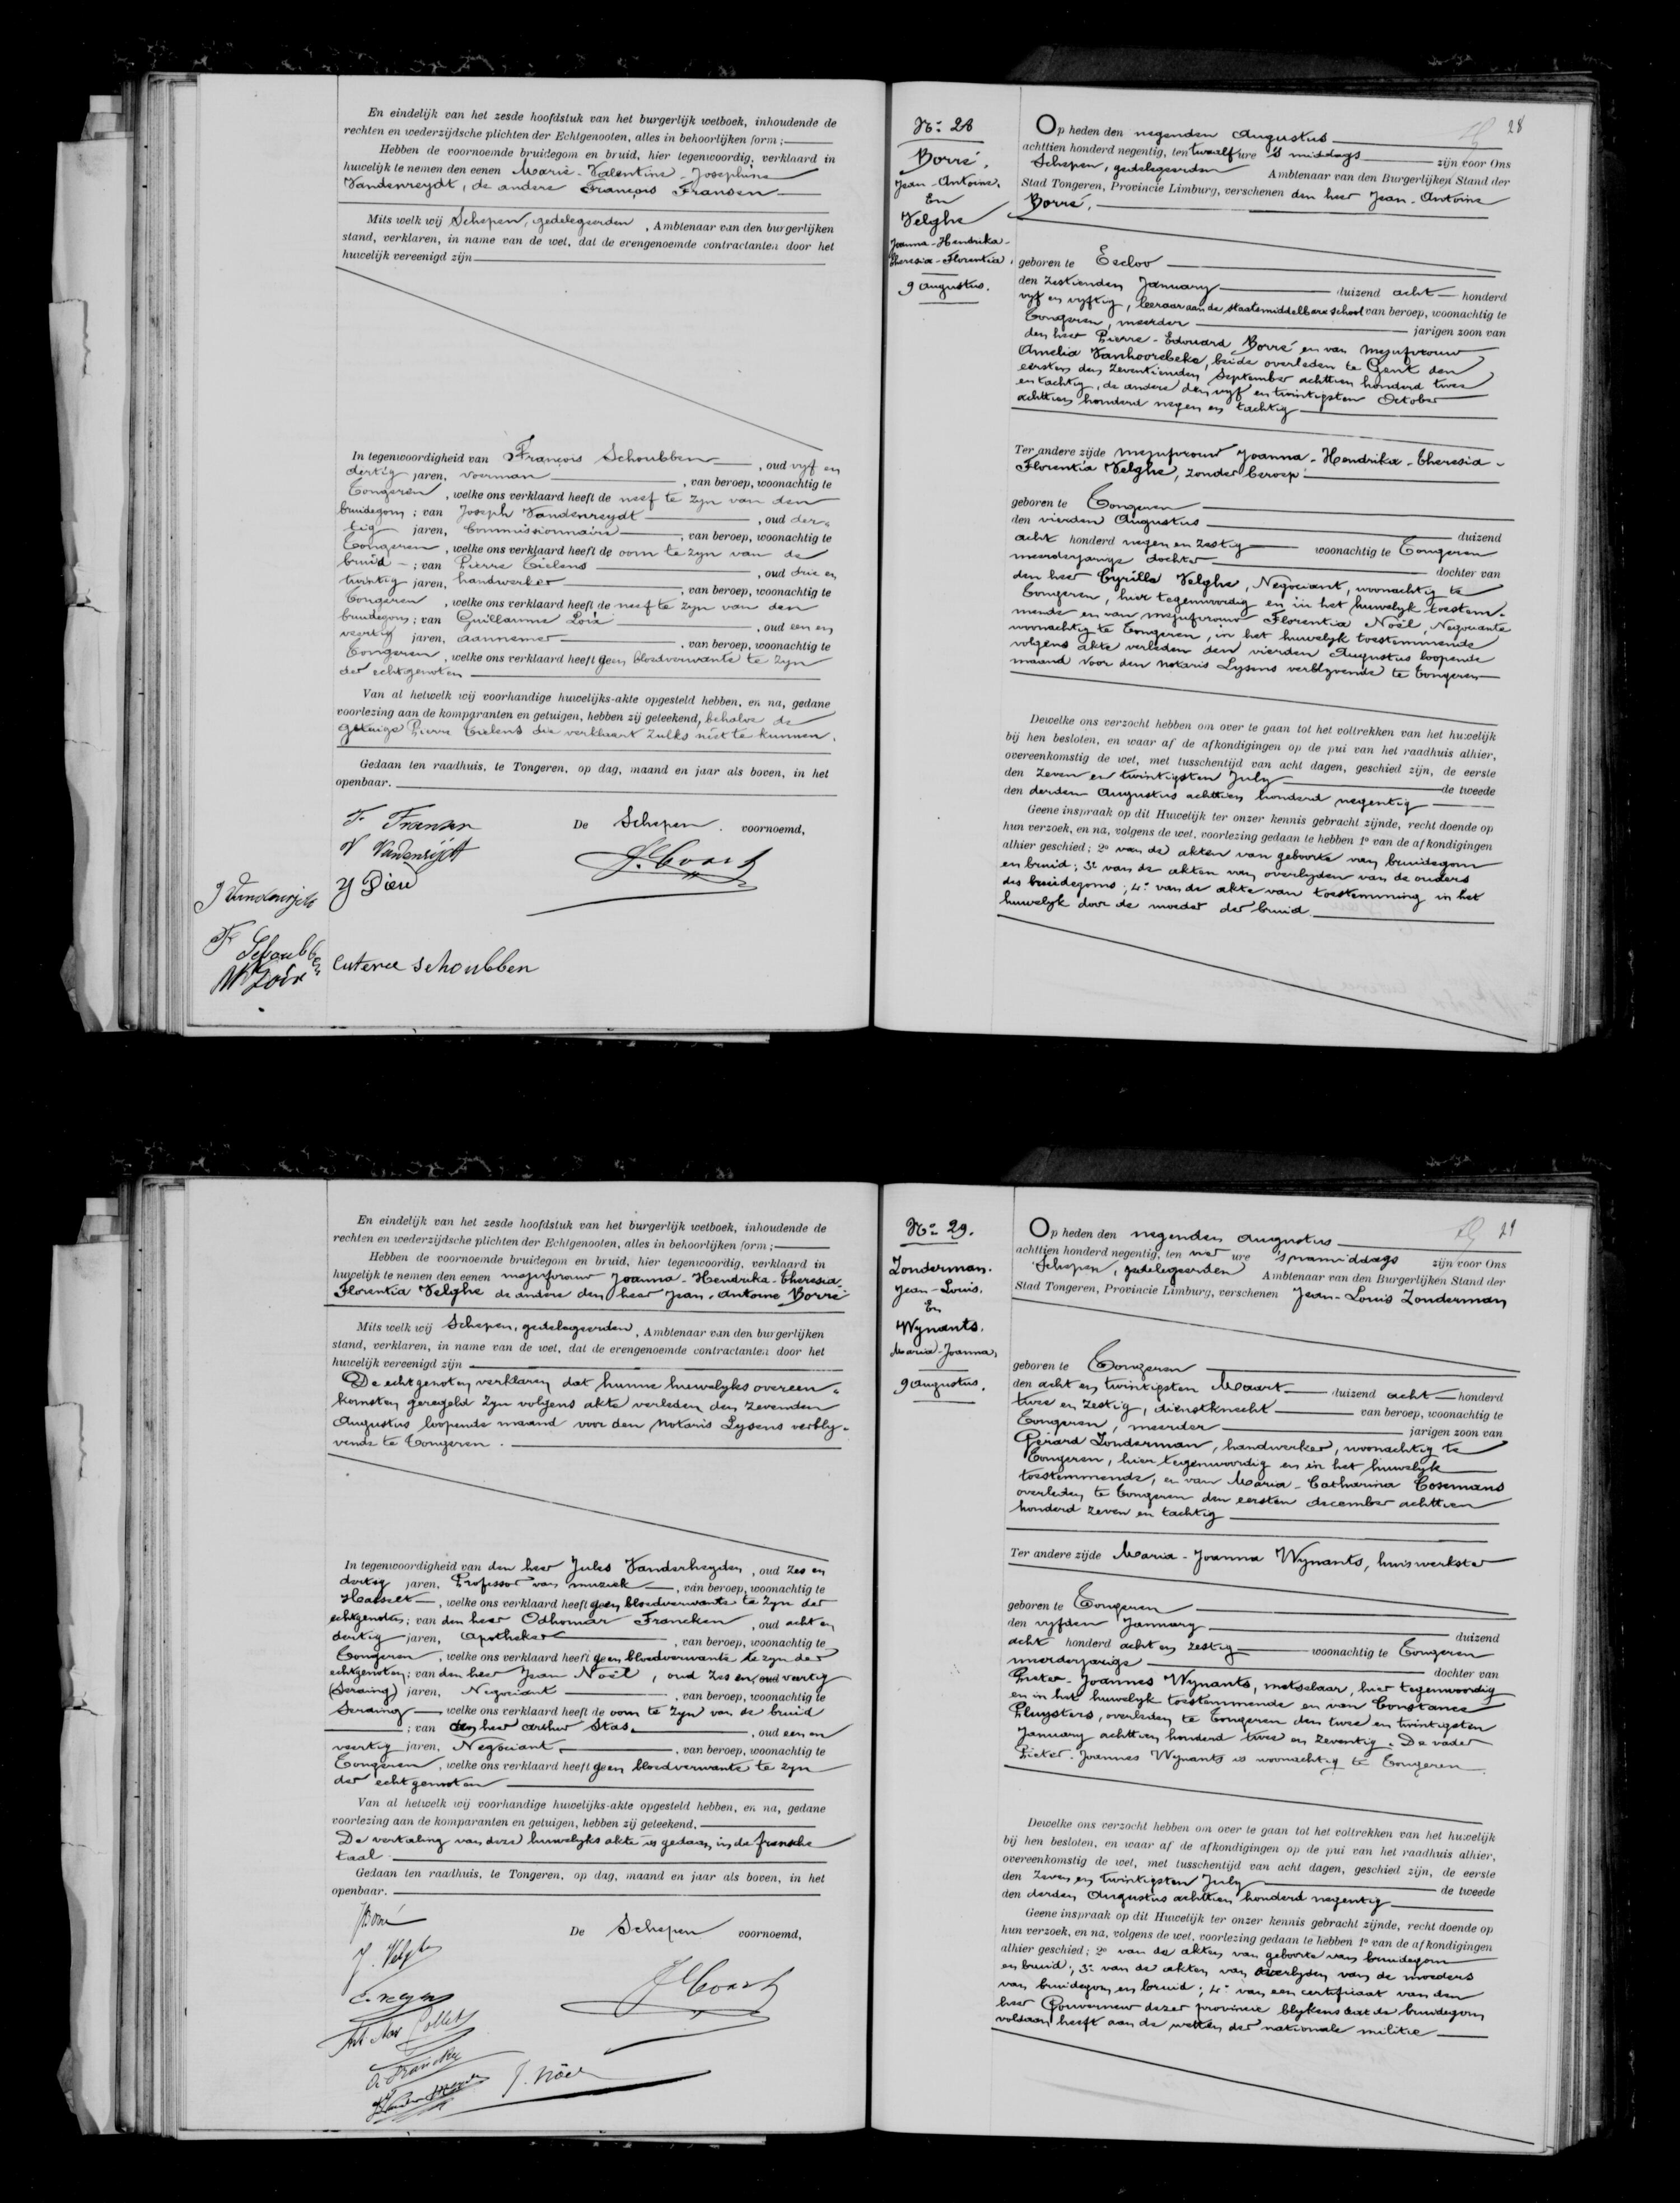 En eindelijk van het zesde hoofdstuk van het burgerlijk wetboek, inhoudende de
rechten en wederzijdsche plichten der Echtgenooten, alles in behoorlijken form ;
Hebben de voornoemde bruidegom en bruid, hier tegenwoordig, verklaard in
huwelijk te nemen den eenen Marie - Valentine - Josephine
Vandenreydt, de andere François Fransen
Mits welk wij Schepen, gedelegeerden, Ambtenaar van den burgerlijken
stand, verklaren, in name van de wet, dat de evengenoemde contractanten door het
huwelijk vereenigd zijn
In tegenwoordigheid van François Schoubben, oud vyf en
dertig jaren, voerman, van beroep, woonachtig te
Tongeren, welke ons verklaard heeft de neef te zyn van den
bruidegom ; van Joseph Vandenreydt, oud der-
tig jaren, Commissionnaire, van beroep, woonachtig te
Tongeren, welke ons verklaard heeft de oom te zyn van de
bruid ; van Pierre Tielens, oud drie en
twintig jaren, handwerker, van beroep, woonachtig te
Tongeren, welke ons verklaard heeft de neef te zyn van den
bruidegom ; van Guillaume Loix, oud een en
veertig jaren, aannemer, van beroep, woonachtig te
Tongeren, welke ons verklaard heeft geen bloedverwante te zyn
der echtgenoten
Van al hetwelk wij voorhandige huwelijks-akte opgesteld hebben, en na, gedane
voorlezing aan de komparanten en getuigen, hebben zij geteekend, behalve de
getuige Pierre Tielens die verklaart zulks niet te kunnen.
Gedaan ten raadhuis, te Tongeren, op dag, maand en jaar als boven, in het
openbaar.
F. Fransen
De Schepen. voornoemd,
V Vandenrijdt
F. Schoubben
schoubben
Nr. 28
Borré.
Jean-Antoine.
En
Velghe
Joanna-Hendrika-
Theresia-Florentia.
9 augustus.
28
Op heden den negenden augustus
achttien honderd negentig, ten twaalf ure 's middags zijn voor Ons
Schepen, gedelegeerden Ambtenaar van den Burgerlijken Stand der
Stad Tongeren, Provincie Limburg, verschenen den heer Jean-Antoine
Borré,
geboren te Eecloo
den zestienden January duizend acht honderd
vyf en vyftig, leeraar aan de staatsmiddelbare school van beroep, woonachtig te
Tongeren, meerder jarigen zoon van
den heer Pierre-Edouard Borré en van Mejufvrouw
Amelia Vanhoorebeke, beide overleden te Gent den
eersten den zeventienden September achttien honderd twee
en tachtig, de andere den vyf en twintigsten October
achttien honderd negen en tachtig
Ter andere zijde Mejufvrouw Joanna-Hendrika-Theresia-
Florentia Velghe, zonder beroep
geboren te Tongeren
den vierden Augustus duizend
acht honderd negen en zestig woonachtig te Tongeren
meerderjarige dochter dochter van
den heer Cyrille Velghe, Negociant, woonachtig te
Tongeren, hier tegenwoordig en in het huwelyk toestem-
mende en van mejufvrouw Florentia Noël, Negociante
woonachtig te Tongeren, in het huwelyk toestemmende
volgens akte verleden den vierden Augustus loopende
maand voor den notaris Lysens verblyvende te Tongeren
Dewelke ons verzocht hebben om over te gaan tot het voltrekken van het huwelijk
bij hen besloten, en waar af de afkondigingen op de pui van het raadhuis alhier,
overeenkomstig de wet, met tusschentijd van acht dagen, geschied zijn, de eerste
den zeven en twintigsten July de tweede
den derden Augustus achttien honderd negentig
Geene inspraak op dit Huwelijk ter onzer kennis gebracht zijnde, recht doende op
hun verzoek, en na, volgens de wet, voorlezing gedaan te hebben 1º van de afkondigingen
alhier geschied ; 2º van de akten van geboorte van bruidegom
en bruid ; 3º van de akten van overlyden van de ouders
des bruidegoms ; 4º van de akte van toestemming in het
huwelyk door de moeder der bruid.
En eindelijk van het zesde hoofdstuk van het burgerlijk wetboek, inhoudende de
rechten en wederzijdsche plichten der Echtgenooten, alles in behoorlijken form ;
Hebben de voornoemde bruidegom en bruid, hier tegenwoordig, verklaard in
huwelijk te nemen den eenen mejufvrouw Joanna-Hendrika-Theresia-
Florentia Velghe de andere den heer Jean-Antoine Borré
Mits welk wij Schepen, gedelegeerden, Ambtenaar van den burgerlijken
stand, verklaren, in name van de wet, dat de evengenoemde contractanten door het
huwelijk vereenigd zijn
De echtgenoten verklaren dat hunne huwelyks overeen-
komsten geregeld zyn volgens akte verleden den zevenden
Augustus loopende maand voor den notaris Lysens verbly-
vende te Tongeren.
In tegenwoordigheid van den heer Jules Vanderheyden, oud zes en
dertig jaren, Professor van muziek, van beroep, woonachtig te
Hasselt, welke ons verklaard heeft geen bloedverwante te zyn der
echtgenoten ; van den heer Odhomar Francken, oud acht en
dertig jaren, apotheker, van beroep, woonachtig te
Tongeren, welke ons verklaard heeft geen bloedverwante te zyn der
echtgenoten ; van den heer Jean Noël, oud zes en oud veertig
(Seraing) jaren, Negociant, van beroep, woonachtig te
Seraing welke ons verklaard heeft de oom te zyn van de bruid
; van den heer Arthur Stas, oud een en
veertig jaren, Negociant, van beroep, woonachtig te
Tongeren, welke ons verklaard heeft geen bloedverwante te zyn
der echtgenoten
Van al hetwelk wij voorhandige huwelijks-akte opgesteld hebben, en na, gedane
voorlezing aan de komparanten en getuigen, hebben zij geteekend,
De vertaling van deze huwelyks akte is gedaan in de fransche
taal.
Gedaan ten raadhuis, te Tongeren, op dag, maand en jaar als boven, in het
openbaar.
De Schepen voornoemd,
J. Velghe
J. Noël
Nº 29.
Zonderman.
Jean-Louis.
En
Wynants.
Maria-Joanna,
9 augustus.
29
Op heden den negenden augustus
achttien honderd negentig, ten vier ure 's namiddags zijn voor Ons
Schepen, gedelegeerden Ambtenaar van den Burgerlijken Stand der
Stad Tongeren, Provincie Limburg, verschenen Jean-Louis Zonderman
geboren te Tongeren
den acht en twintigsten Maart duizend acht honderd
twee en zestig, dienstknecht van beroep, woonachtig te
Tongeren, meerder jarigen zoon van
Gérard Zonderman, handwerker, woonachtig te
Tongeren, hier tegenwoordig en in het huwelyk
toestemmende, en van Maria-Catharina Cosemans
overleden te Tongeren den eersten december achttien
honderd zeven en tachtig
Ter andere zijde Maria-Joanna Wynants, huiswerkster
geboren te Tongeren
den vyfden January duizend
acht honderd acht en zestig woonachtig te Tongeren
meerderjarige dochter van
Pieter-Joannes Wynants, metselaar, hier tegenwoordig
en in het huwelyk toestemmende en van Constance
Pluysters, overleden te Tongeren den twee en twintigsten
January achttien honderd twee en zeventig. De vader
Pieter-Joannes Wynants is woonachtig te Tongeren.
Dewelke ons verzocht hebben om over te gaan tot het voltrekken van het huwelijk
bij hen besloten, en waar af de afkondigingen op de pui van het raadhuis alhier,
overeenkomstig de wet, met tusschentijd van acht dagen, geschied zijn, de eerste
den zeven en twintigsten July de tweede
den derden Augustus achttien honderd negentig
Geene inspraak op dit Huwelijk ter onzer kennis gebracht zijnde, recht doende op
hun verzoek, en na, volgens de wet, voorlezing gedaan te hebben 1º van de afkondigingen
alhier geschied ; 2º van de akten van geboorte van bruidegom
en bruid ; 3º van de akten van overlyden van de moeders
van bruidegom en bruid ; 4º van een certificaat van den
heer Gouverneur dezer provincie blykens dat de bruidegom
voldaan heeft aan de wetten der nationale militie